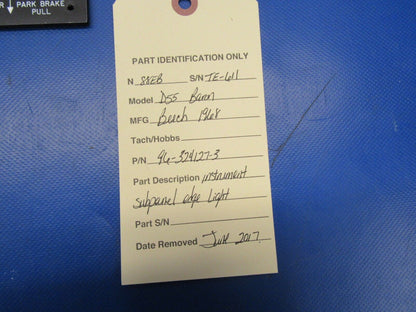 R ↓ PARK BRAKE
PULL
PART IDENTIFICATION ONLY
N 88EB S/N TE-611
Model D55 Baron
MFG Beech 1968
Tach/Hobbs
P/N 96-324127-3
Part Description instrument
subpanel edge light
Part S/N
Date Removed June 2017